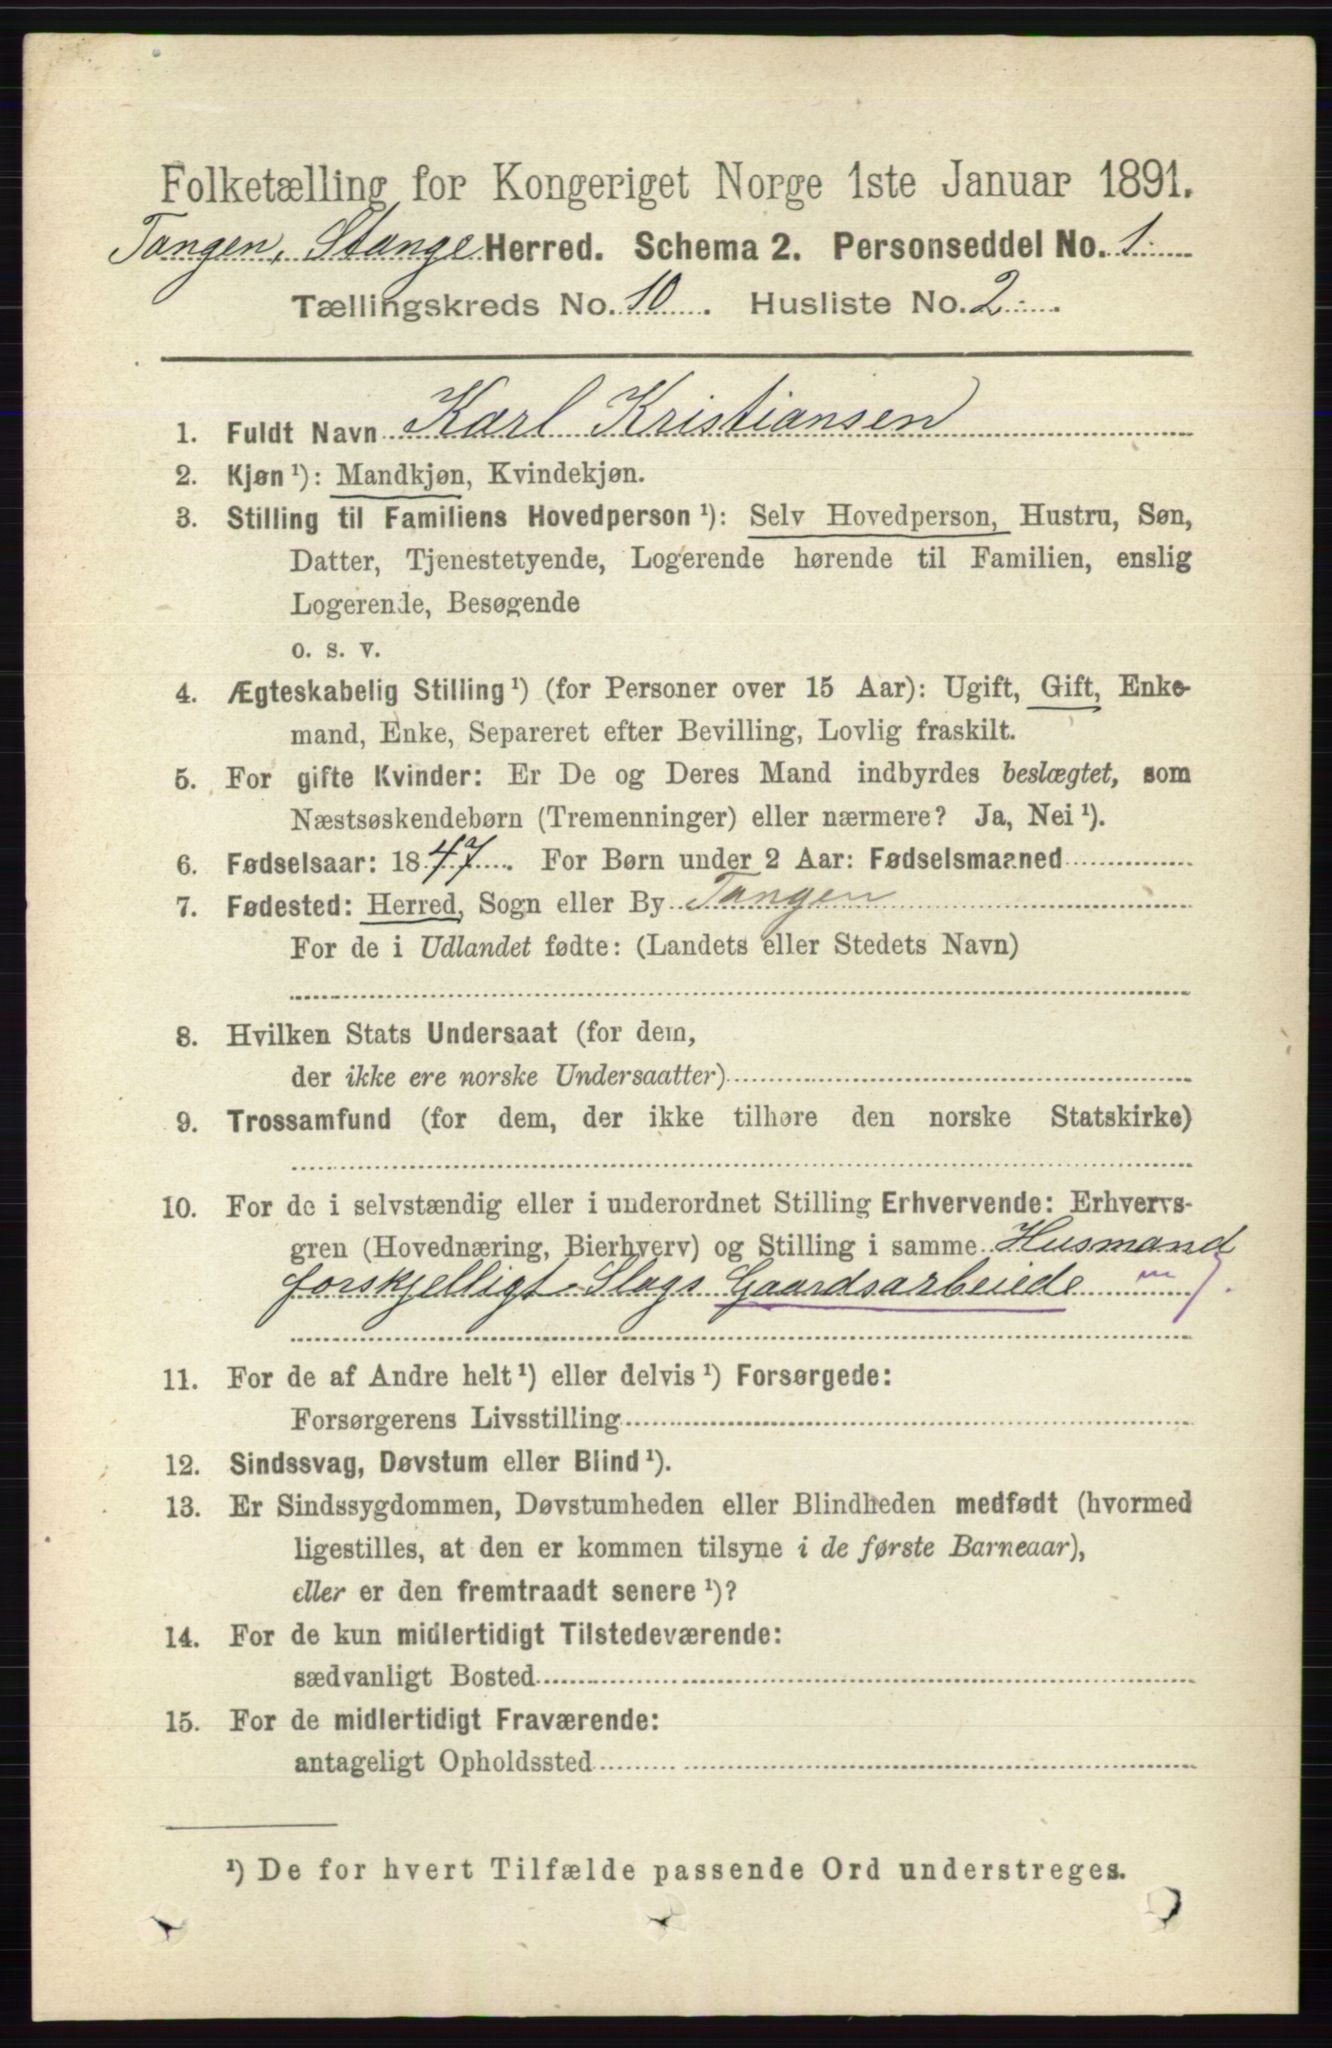 Folketælling for Kongeriget Norge 1ste Januar 1891.
Tangen, Stange Herred. Schema 2. Personseddel No. 1.
Tællingskreds No. 10. Husliste No. 2.
1. Fuldt Navn Karl Kristiansen
2. Kjøn ¹): Mandkjøn, Kvindekjøn.
3. Stilling til Familiens Hovedperson ¹): Selv Hovedperson, Hustru, Søn,
Datter, Tjenestetyende, Logerende hørende til Familien, enslig
Logerende, Besøgende
o. s. v.
4. Ægteskabelig Stilling ¹) (for Personer over 15 Aar): Ugift, Gift, Enke-
mand, Enke, Separeret efter Bevilling, Lovlig fraskilt.
5. For gifte Kvinder: Er De og Deres Mand indbyrdes beslægtet, som
Næstsøskendebørn (Tremenninger) eller nærmere? Ja, Nei ¹).
6. Fødselsaar: 1847. For Børn under 2 Aar: Fødselsmaaned
7. Fødested: Herred, Sogn eller By Tangen
For de i Udlandet fødte: (Landets eller Stedets Navn)
8. Hvilken Stats Undersaat (for dem,
der ikke ere norske Undersaatter)
9. Trossamfund (for dem, der ikke tilhøre den norske Statskirke)
10. For de i selvstændig eller i underordnet Stilling Erhvervende: Erhvervs-
gren (Hovednæring, Bierhverv) og Stilling i samme Husmand
forskjelligt Slags Gaardsarbeiede
11. For de af Andre helt ¹) eller delvis ¹) Forsørgede:
Forsørgerens Livsstilling
12. Sindssvag, Døvstum eller Blind ¹).
13. Er Sindssygdommen, Døvstumheden eller Blindheden medfødt (hvormed
ligestilles, at den er kommen tilsyne i de første Barneaar),
eller er den fremtraadt senere ¹)?
14. For de kun midlertidigt Tilstedeværende:
sædvanligt Bosted
15. For de midlertidigt Fraværende:
antageligt Opholdssted
¹) De for hvert Tilfælde passende Ord understreges.